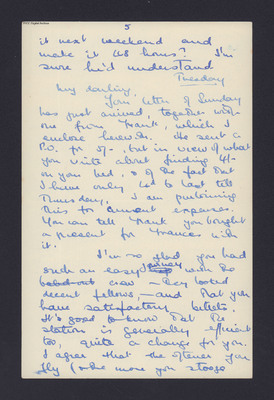 5
it next weekend and
make it 48 hours? I'm
sure he'd understand
Tuesday
My darling,
Your letter of Sunday
has just arrived, together with
one from Frank, which I
enclose herewith. He sent a
P.O. for 5/-, but in view of what
you write about finding 4/-
on your bed, & of the fact that
I have only to last till
Thursday, I am purloining
this for current expenses.
You can tell Frank you bought
a present for Frances with
it.
I'm so glad you had
such an easy journey with the
crew — they looked
decent fellows, — and that you
have satisfactory billets.
It's good to know that the
station is generally efficient
too, quite a change for you.
I agree that the oftener you
fly (& the more you stooge